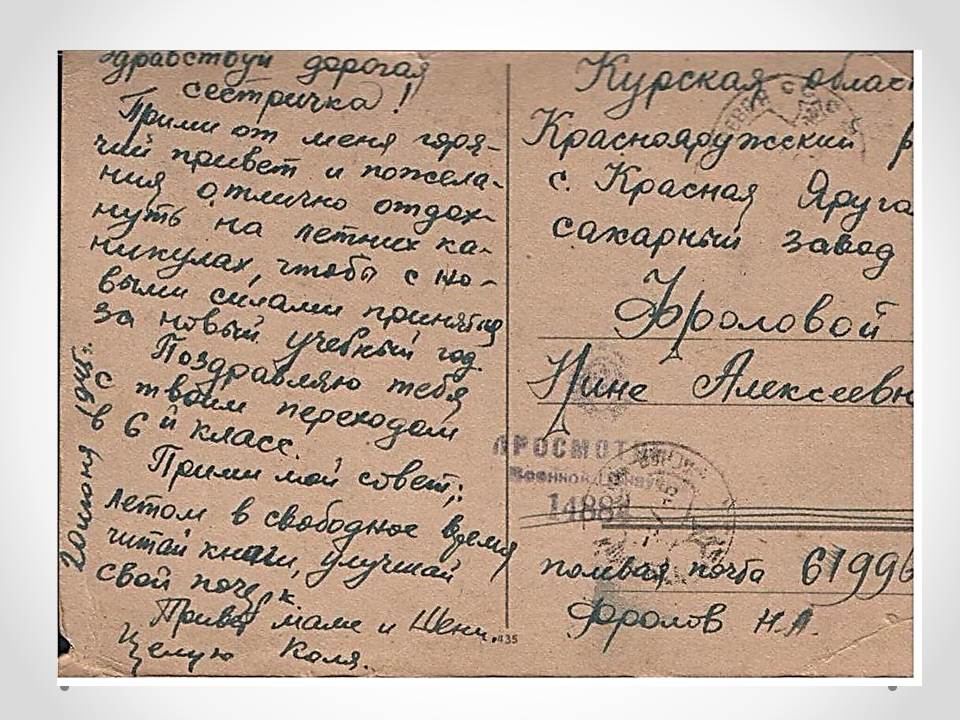 Здравствуй дорогая
сестричка!
Прими от меня горя-
чий привет и пожела-
ния отлично отдох-
нуть на летних ка-
никулах, чтобы с но-
выми силами приняться
за новый учебный год.
Поздравляю тебя
с твоим переходом
в 6й класс.
Прими мой совет;
летом в свободное время
читай книги, улучшай
свой почерк.
Привет маме и Жени.
Целую Коля.
20 июня 1945г.
Курская облас
Краснояружский р
с. Красная Яруга
сахарный завод
Фроловой
Нине Алексеевн
ПРОСМОТР
Военной Ценз
14882
полевая почта 61996
Фролов Н.А.